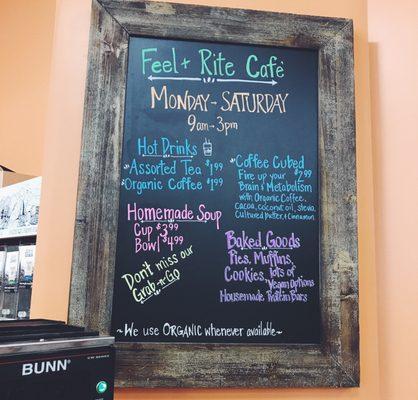 Feel + Rite Café
Monday - Saturday
9am - 3pm
Hot Drinks
Assorted Tea $1.99
Organic Coffee $1.99
Homemade Soup
Cup $3.99
Bowl $4.99
Don't miss our
Grab-n-Go
Coffee Cubed
Fire up your $2.99
Brain & Metabolism
with Organic Coffee,
Cacoa, coconut oil, stevia,
Cultured butter, & cinnamon.
Baked Goods
Pies, Muffins,
Cookies, lots of
Vegan Options
Housemade Protein Bars
~We use ORGANIC whenever available~
BUNN